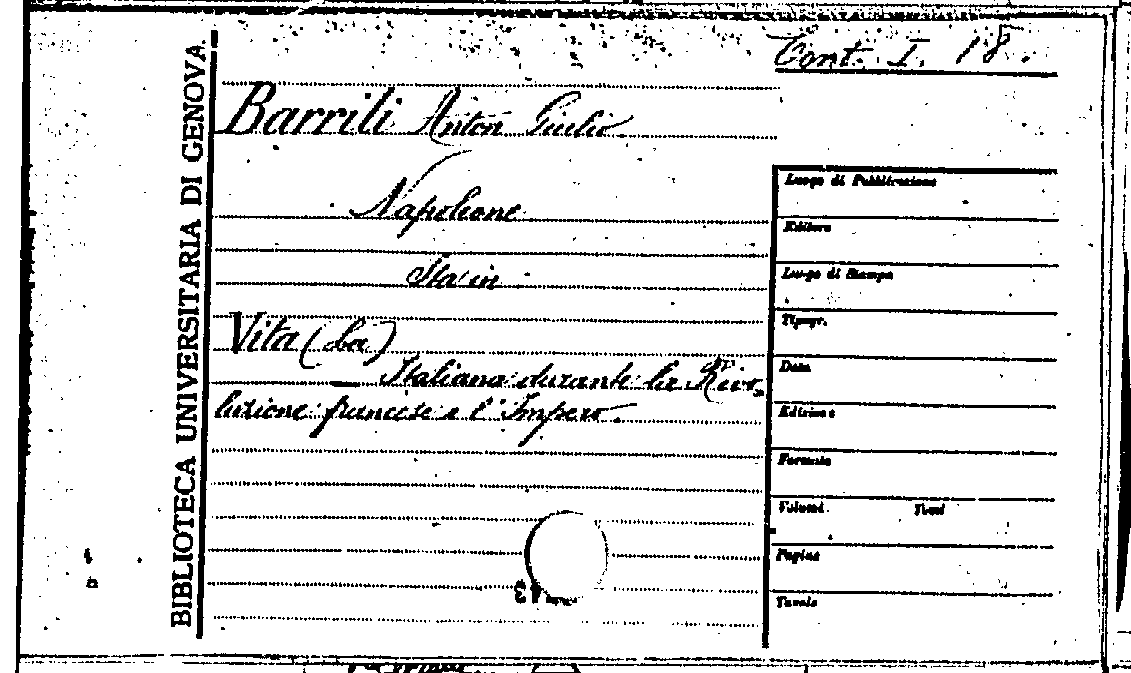 BIBLIOTECA UNIVERSITARIA DI GENOVA.
Cont. I. 18.
Barrili Anton Giulio.
Napoleone
Sta in
Vita (La)
— Italiana durante la Rivo-
luzione francese e l'Impero.
Luogo di Pubblicazione
Editore
Luogo di Stampa
Tipogr.
Data
Edizione
Formato
Volumi Tomi
Pagine
Tavole